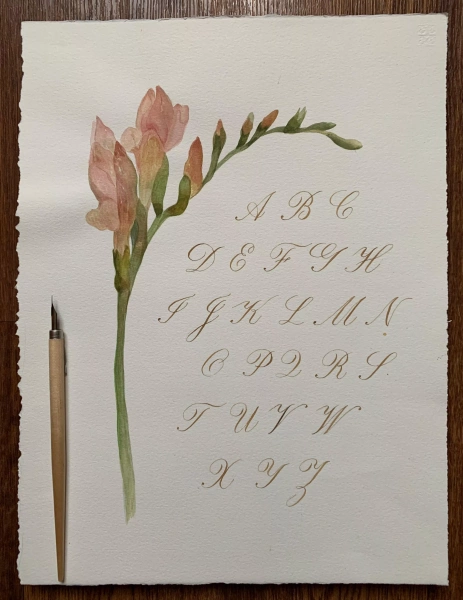 A B C
D E F G H
I J K L M N
O P Q R S
T U V W
X Y Z